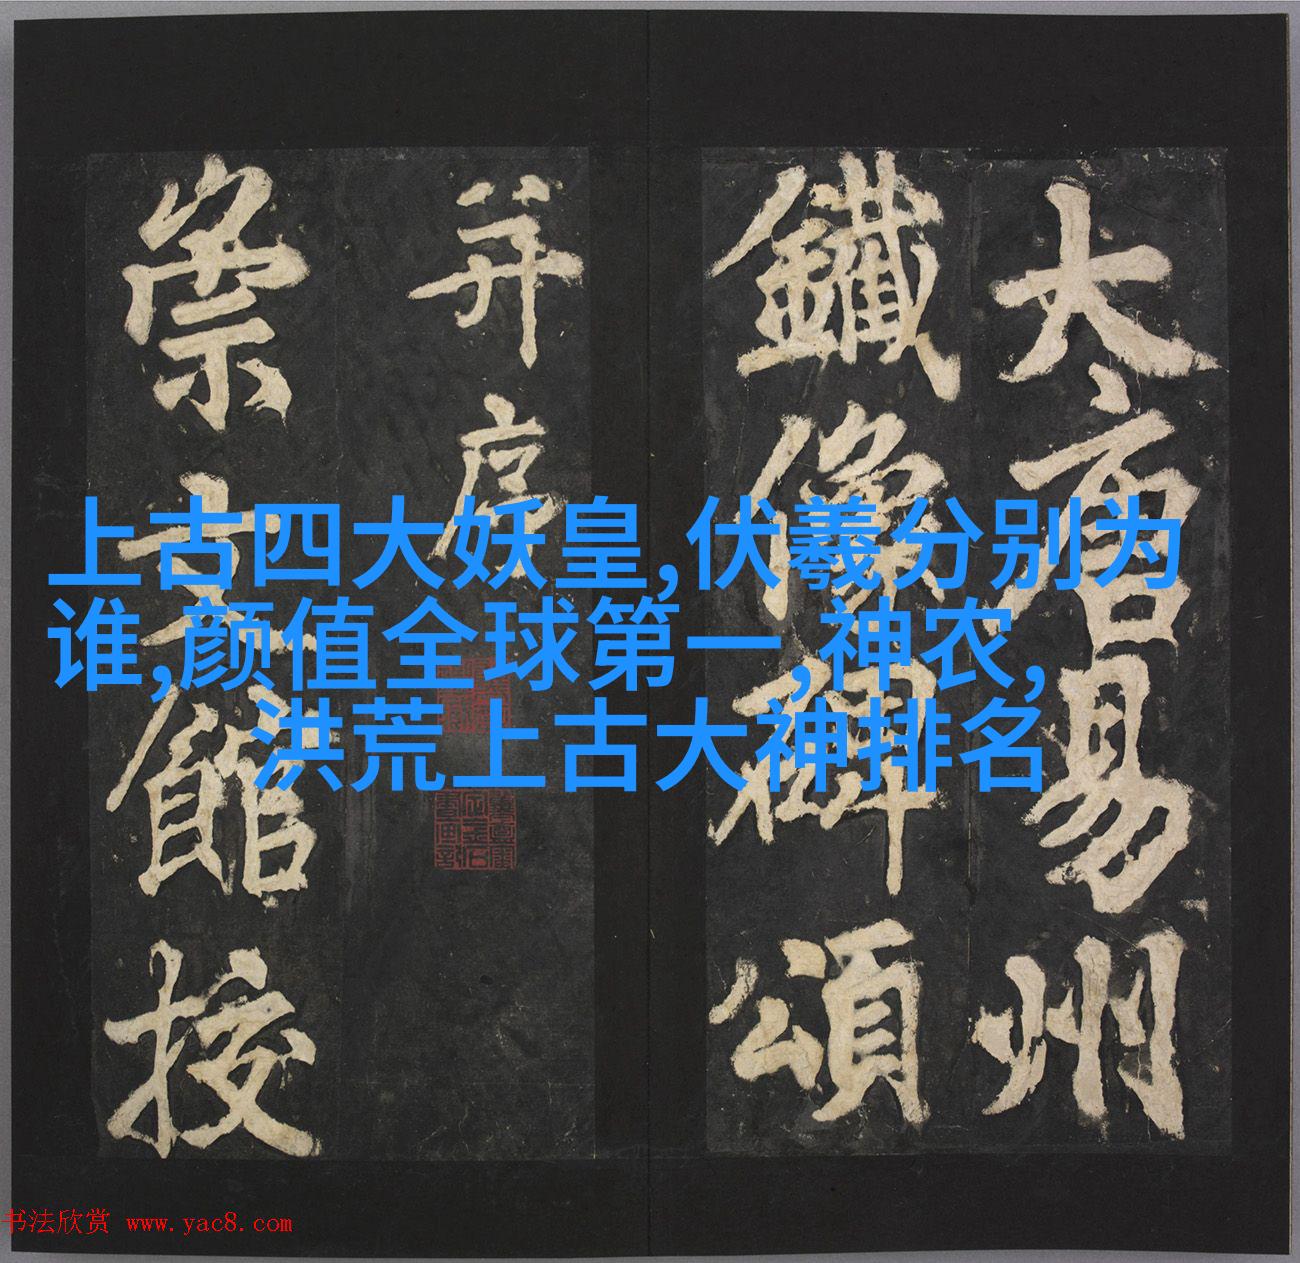 大唐易州
鐵像碑頌
并序
崇文館挍
上古四大妖皇,伏羲分别为
谁,颜值全球第一,神农,
洪荒上古大神排名
书法欣赏 www.yac8.com